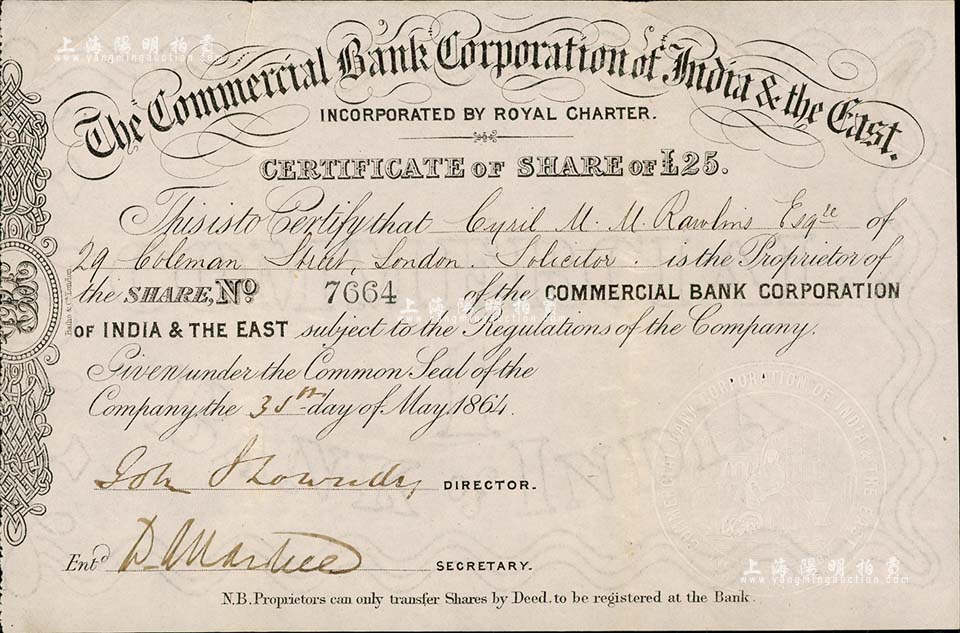 The Commercial Bank Corporation of India & the East.
INCORPORATED BY ROYAL CHARTER.
CERTIFICATE OF SHARE OF £25.
This is to Certify that Cyril M. M. Rawlins Esqre of
29 Coleman Street, London. Solicitor. is the Proprietor of
the SHARE, No 7664 of the COMMERCIAL BANK CORPORATION
OF INDIA & THE EAST subject to the Regulations of the Company.
Given under the Common Seal of the
Company, the 31st day of May, 1864.
DIRECTOR.
Entd
SECRETARY.
N.B. Proprietors can only transfer Shares by Deed, to be registered at the Bank.
COMMERCIAL BANK CORPORATION OF INDIA & THE EAST
上海陽明拍賣
www.yangmingauction.com
上海陽明拍賣
www.yangmingauction.com
上海陽明拍賣
www.yangmingauction.com